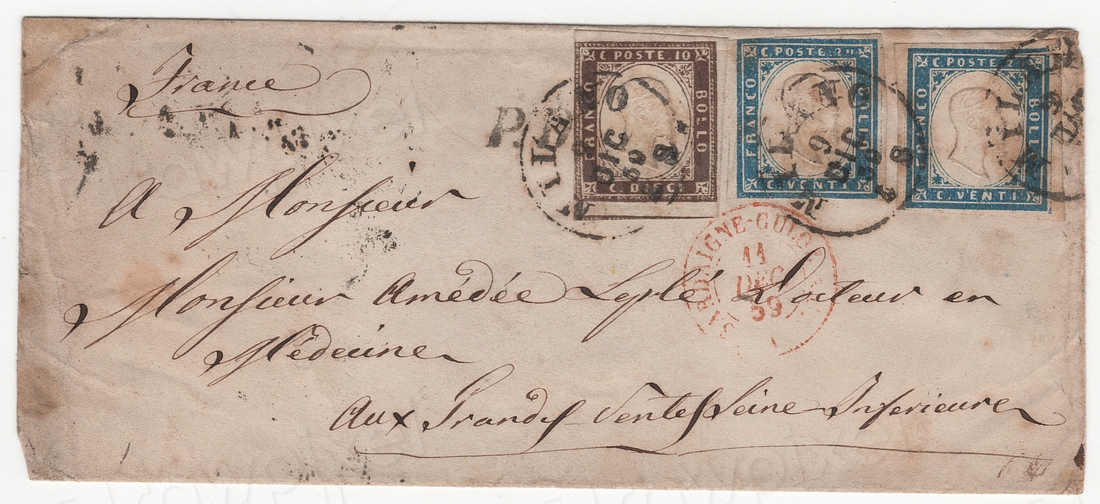 C. POSTE 10
FRANCO
BOLLO
C. DIECI
C. POSTE 20
FRANCO
BOLLO
C. VENTI
C. POSTE 20
FRANCO
C. VENTI
France
P.D.
MILANO
9
DIC
59
MILANO
9
DIC
59
SARDAIGNE-
11
DEC
59
A Monsieur
Monsieur Amédée Leplé Docteur en
Médecine
Aux Grandes Ventes Seine Inferieure